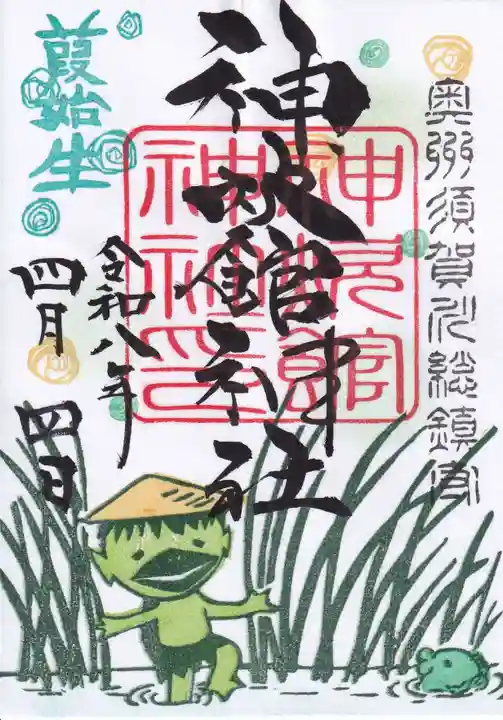 奥州須賀川総鎮守
神炊館神社
令和八年
四月四日
葭始生